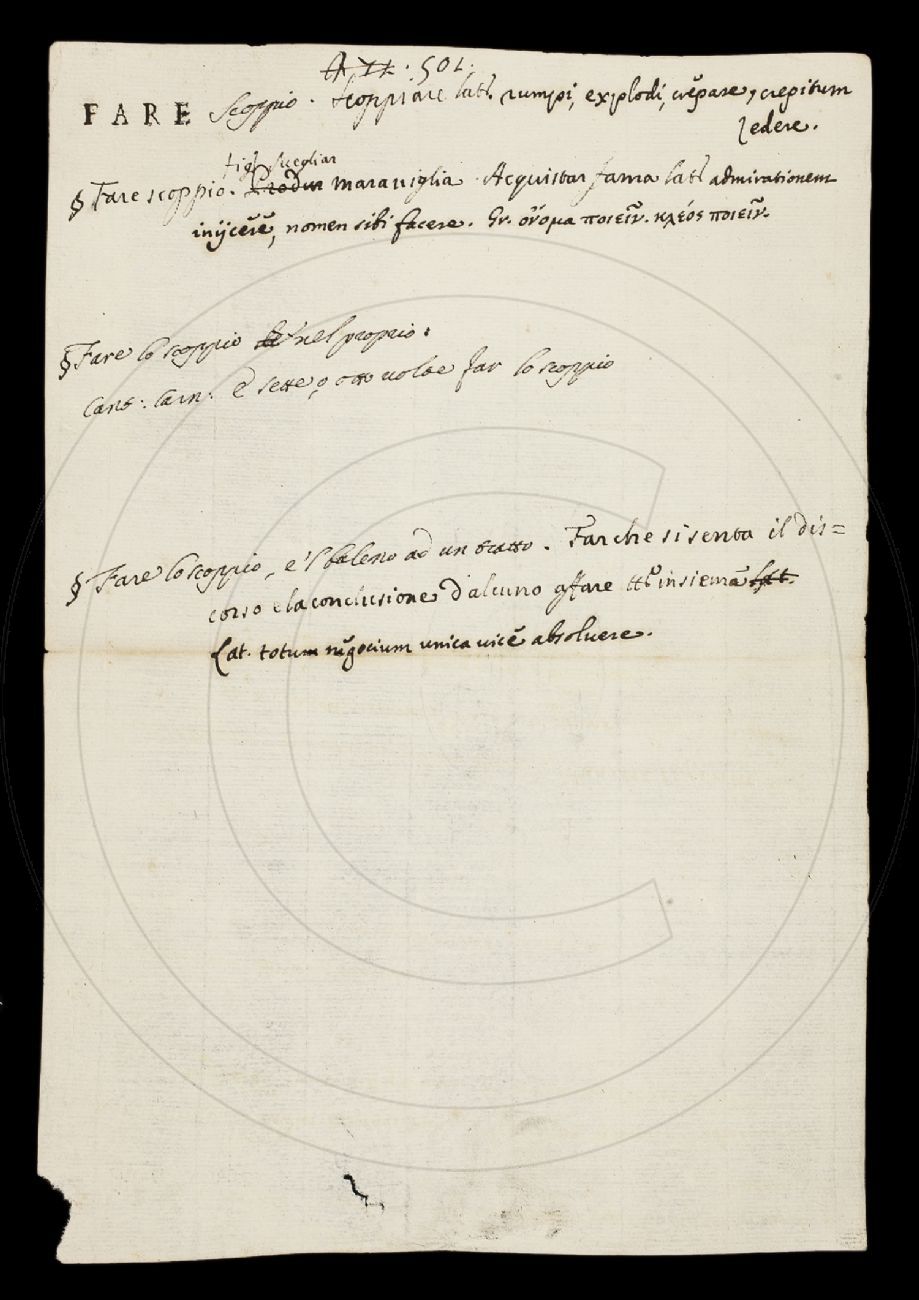 501.
FARE Scoppio. Scoppiare lat. rumpi, explodi, crepare, crepitum
edere.
fig. Svegliar
§ Fare scoppio. Produr marauiglia. Acquistar fama lat. admirationem
inijcere, nomen sibi facere. Gr. ὄνομα ποιεῖν. κλέος ποιεῖν.
§ Fare lo scoppio nel proprio.
Cant. Carn. E sette, o otto uolte far lo scoppio
§ Fare lo scoppio, e 'l baleno ad un tratto. Far che si senta il dis=
corso e la conclusione d'alcuno affare tt.o insieme Lat.
Lat. totum negocium unica uice absoluere.